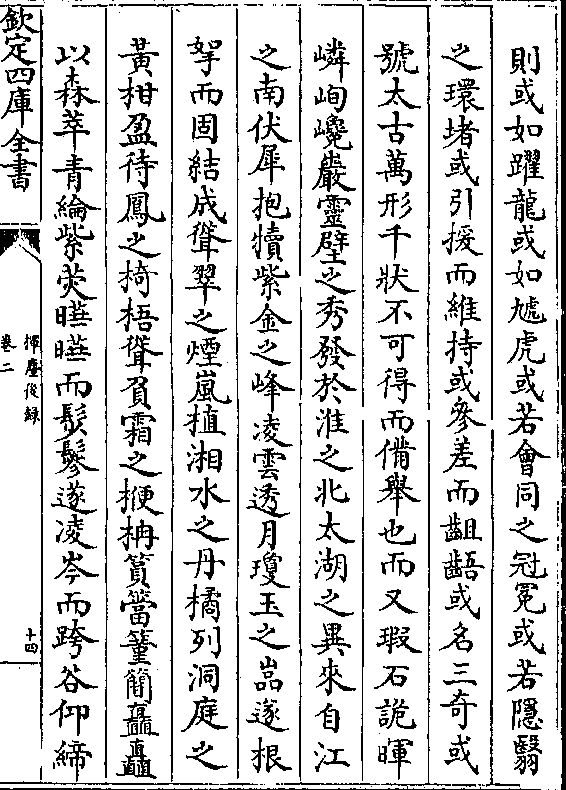 則或如躍龍或如虓虎或若會同之冠冕或若隱翳
之環堵或引援而維持或參差而齟齬或名三奇或
號太古萬形千狀不可得而備舉也而又瑕石詭暉
嶙峋巉巖靈壁之秀發於淮之北太湖之異來自江
之南伏犀抱犢紫金之峰凌雲透月瓊玉之嵓遂根
拏而固結成聳翠之煙嵐植湘水之丹橘列洞庭之
黃柑盈待鳳之椅梧聳負霜之楩柟篔簹篁簡矗矗
以森萃青綸紫荧曣曣而鬖遂凌岑而跨谷仰締
欽定四庫全書
揮麈後録
卷二
十四